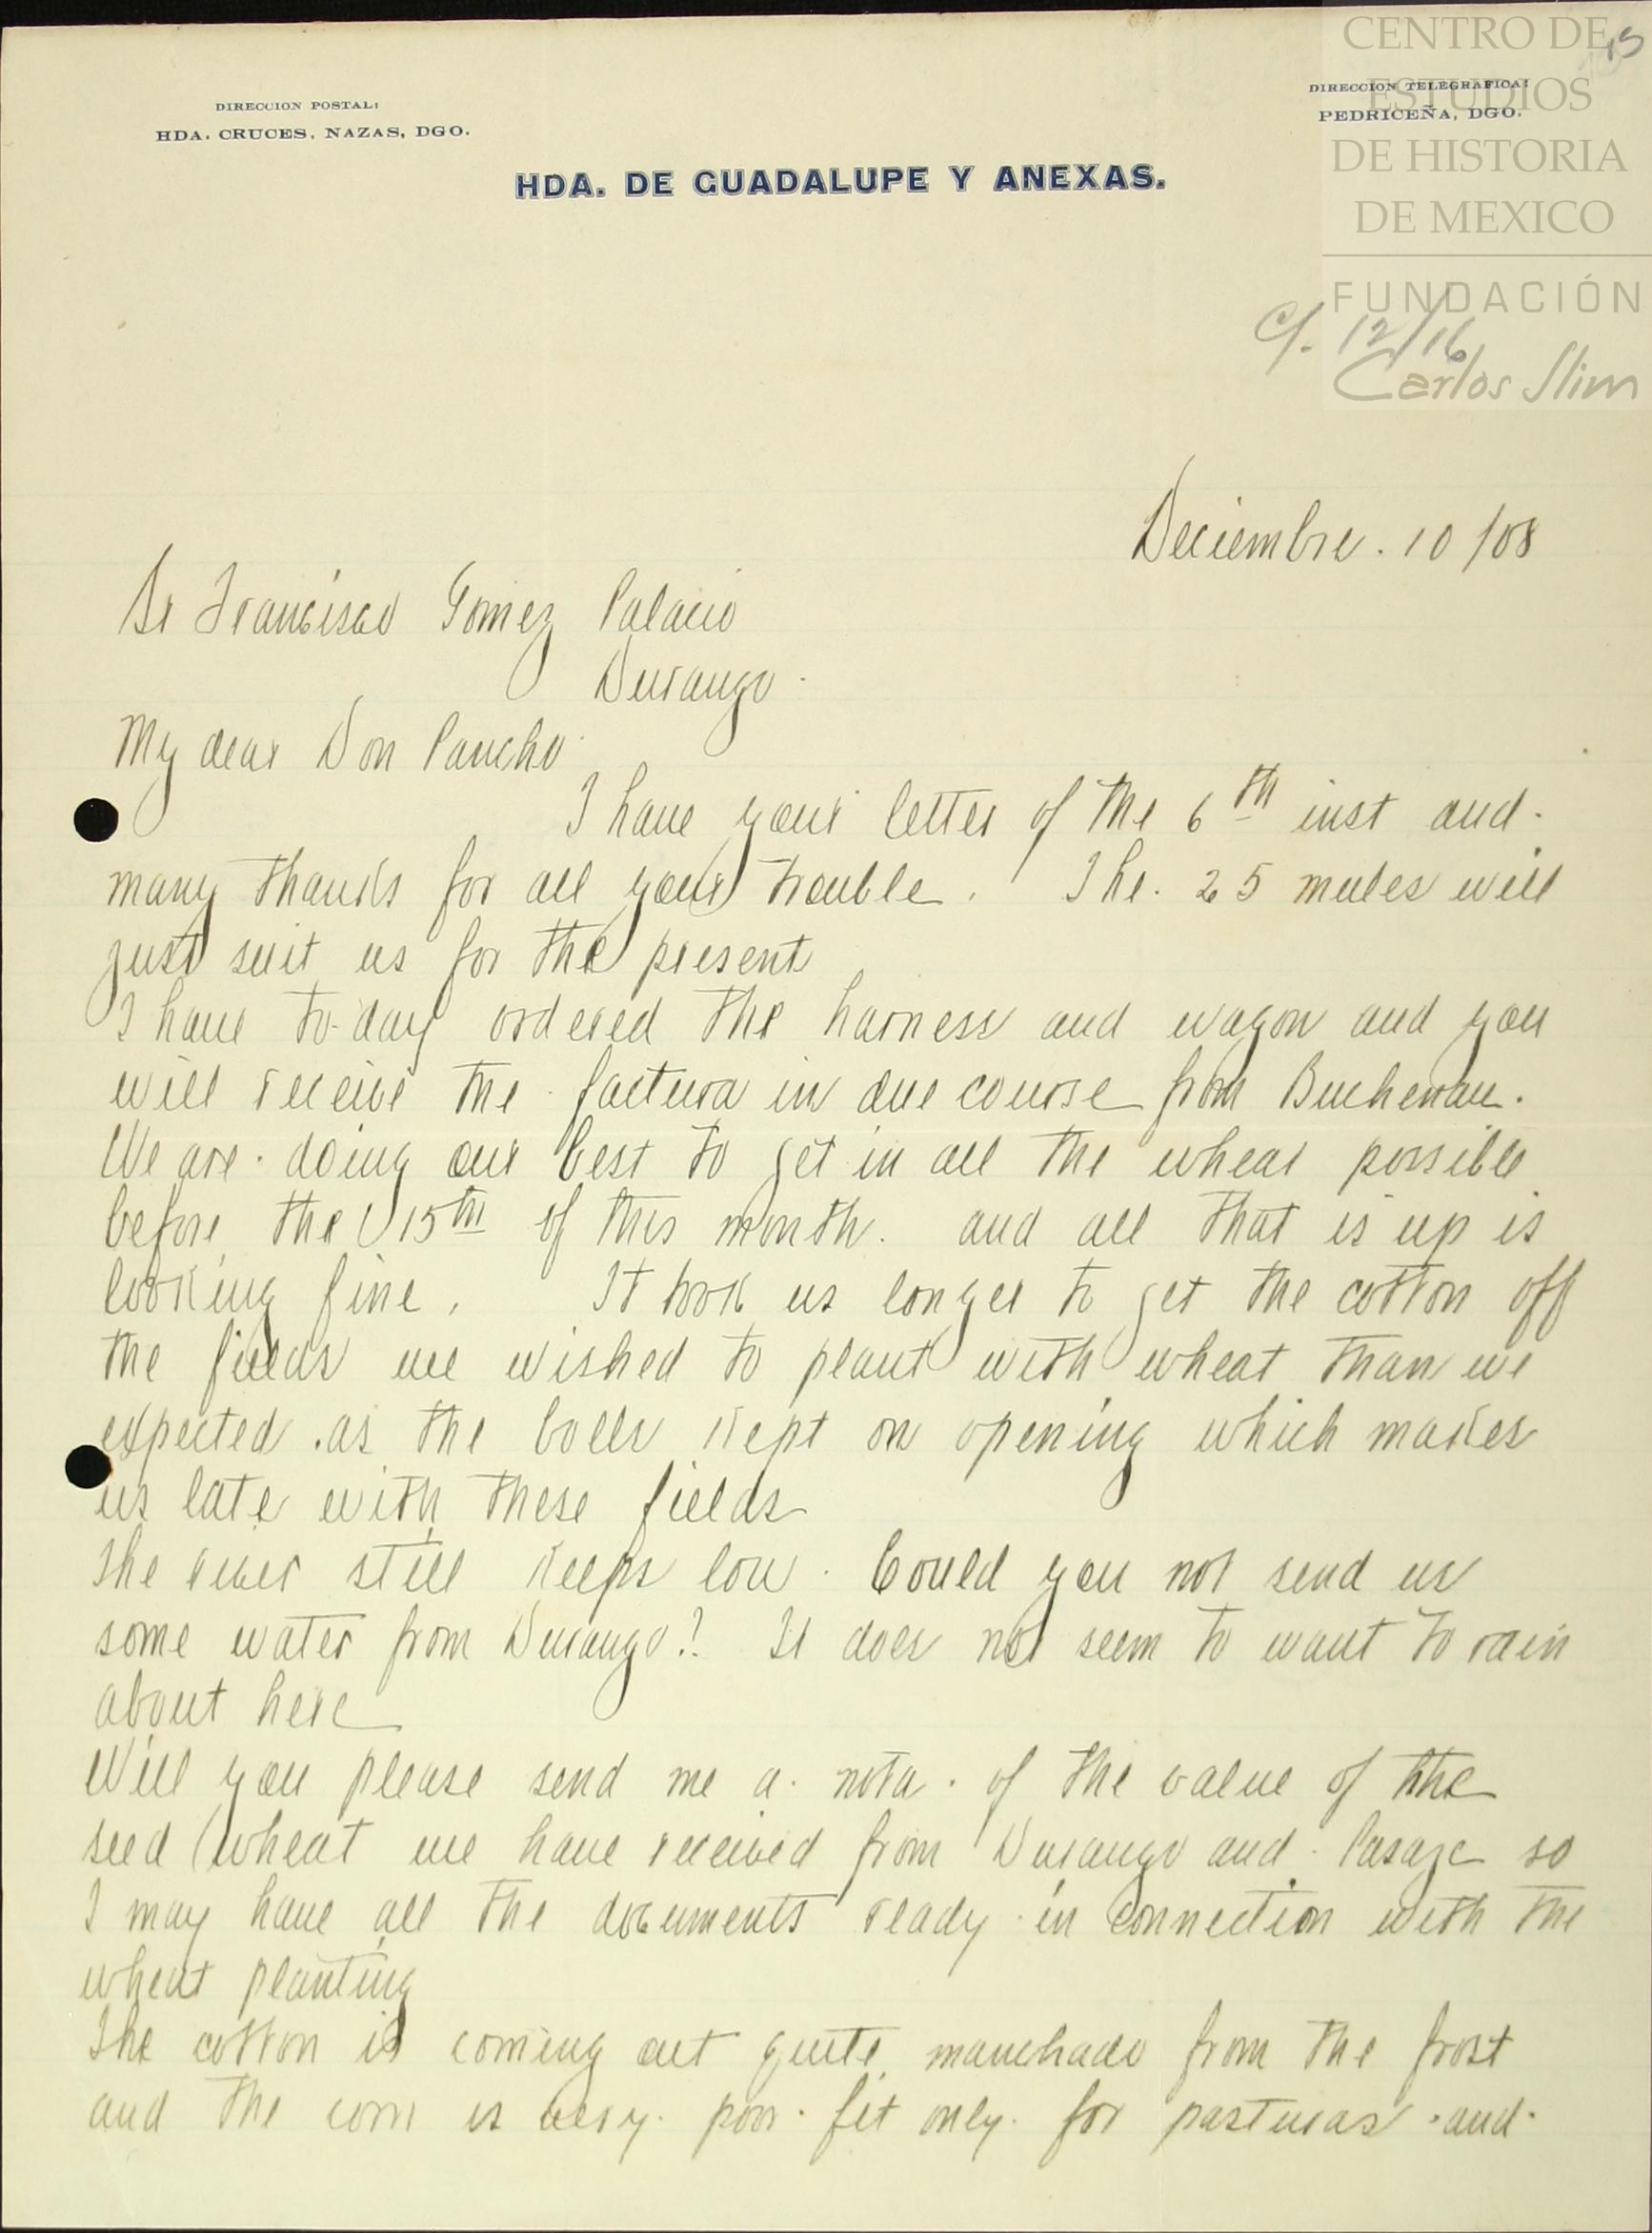 CENTRO DE
ESTUDIOS
DE HISTORIA
DE MEXICO
FUNDACIÓN
Carlos Slim
DIRECCION POSTAL:
HDA. CRUCES, NAZAS, DGO.
DIRECCION TELEGRAFICA:
PEDRICEÑA, DGO.
HDA. DE GUADALUPE Y ANEXAS.
C/. 12/16
Deciembre. 10/08
Sr Francisco Gomez Palacio
Durango.
My dear Don Pancho
I have your letter of the 6th inst and.
many thanks for all your trouble. The. 25 mules will
just suit us for the present
I have to-day ordered the harness and wagon and you
will receive the factura in due course from Buchenau.
We are. doing our best to get in all the wheat possible
before the 15th of this month. and all that is up is
looking fine. It took us longer to get the cotton off
the fields we wished to plant with wheat than we
expected. as the bolls kept on opening which makes
us late with these fields
The river still keeps low. Could you not send us
some water from Durango?. It does not seem to want to rain
about here
Will you please send me a. nota. of the value of the
seed wheat we have received from Durango and. Pasaje so
I may have all the documents ready in connection with the
wheat planting
The cotton is coming out quite manchado from the frost
and the corn is very. poor. fit only. for pasturas. and.